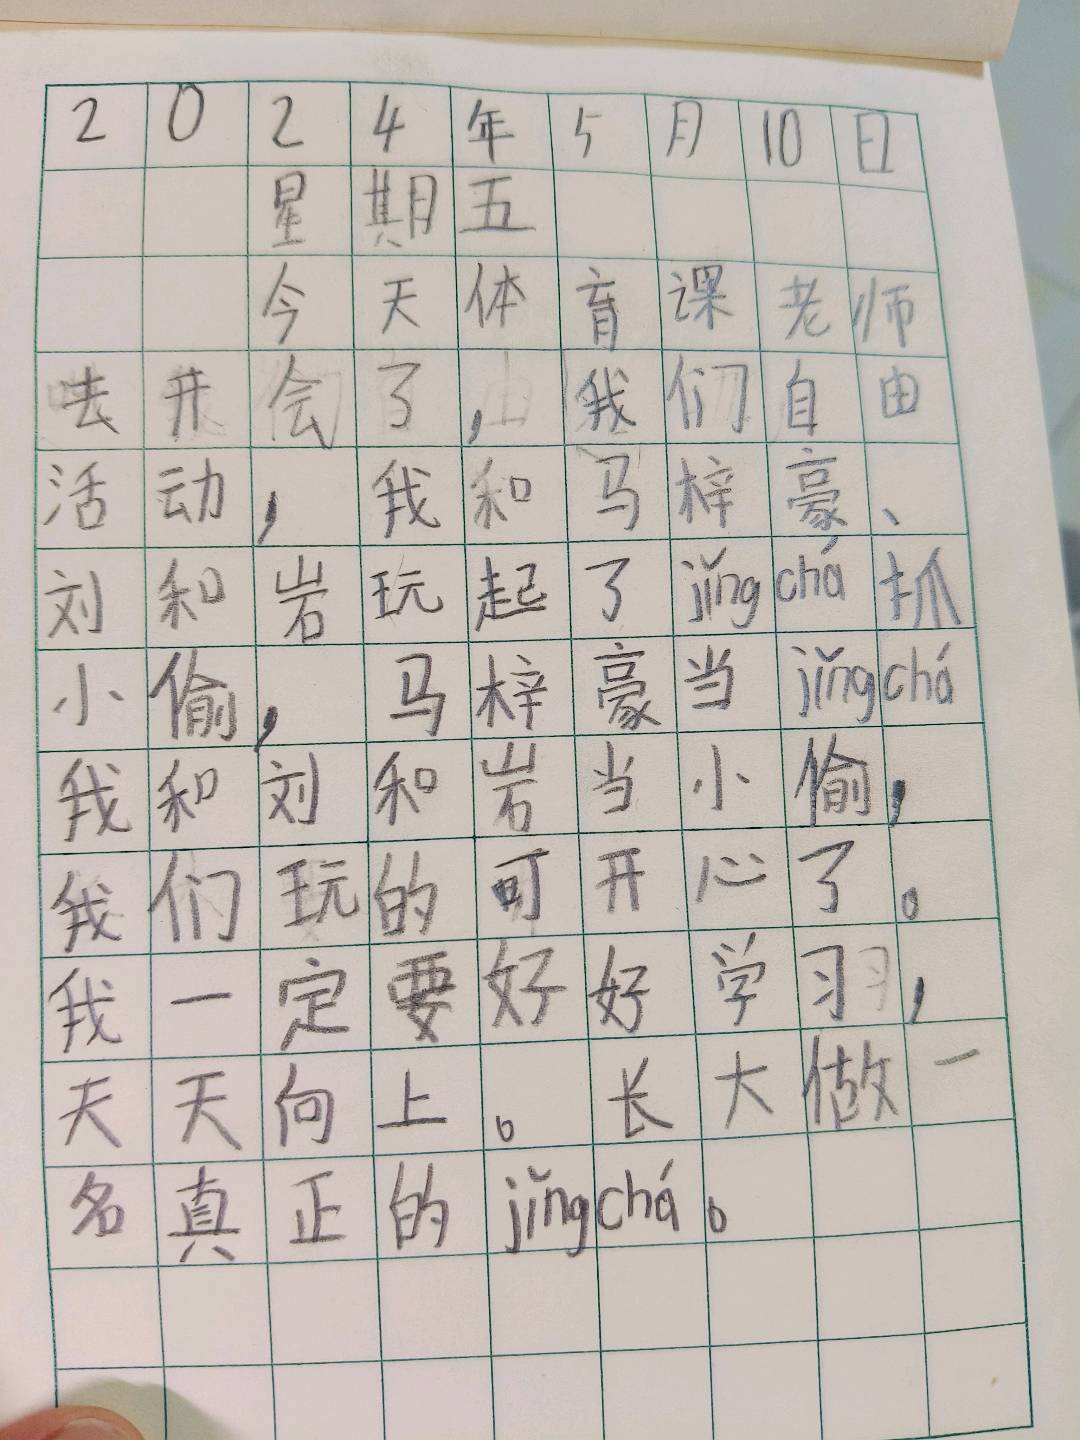 2024年5月10日
星期五
今天体育课老师
去开会了，我们自由
活动，我和马梓豪、
刘和岩玩起了jǐngchá抓
小偷，马梓豪当jǐngchá
我和刘和岩当小偷，
我们玩的可开心了。
我一定要好好学习，
天天向上。长大做一
名真正的jǐngchá。